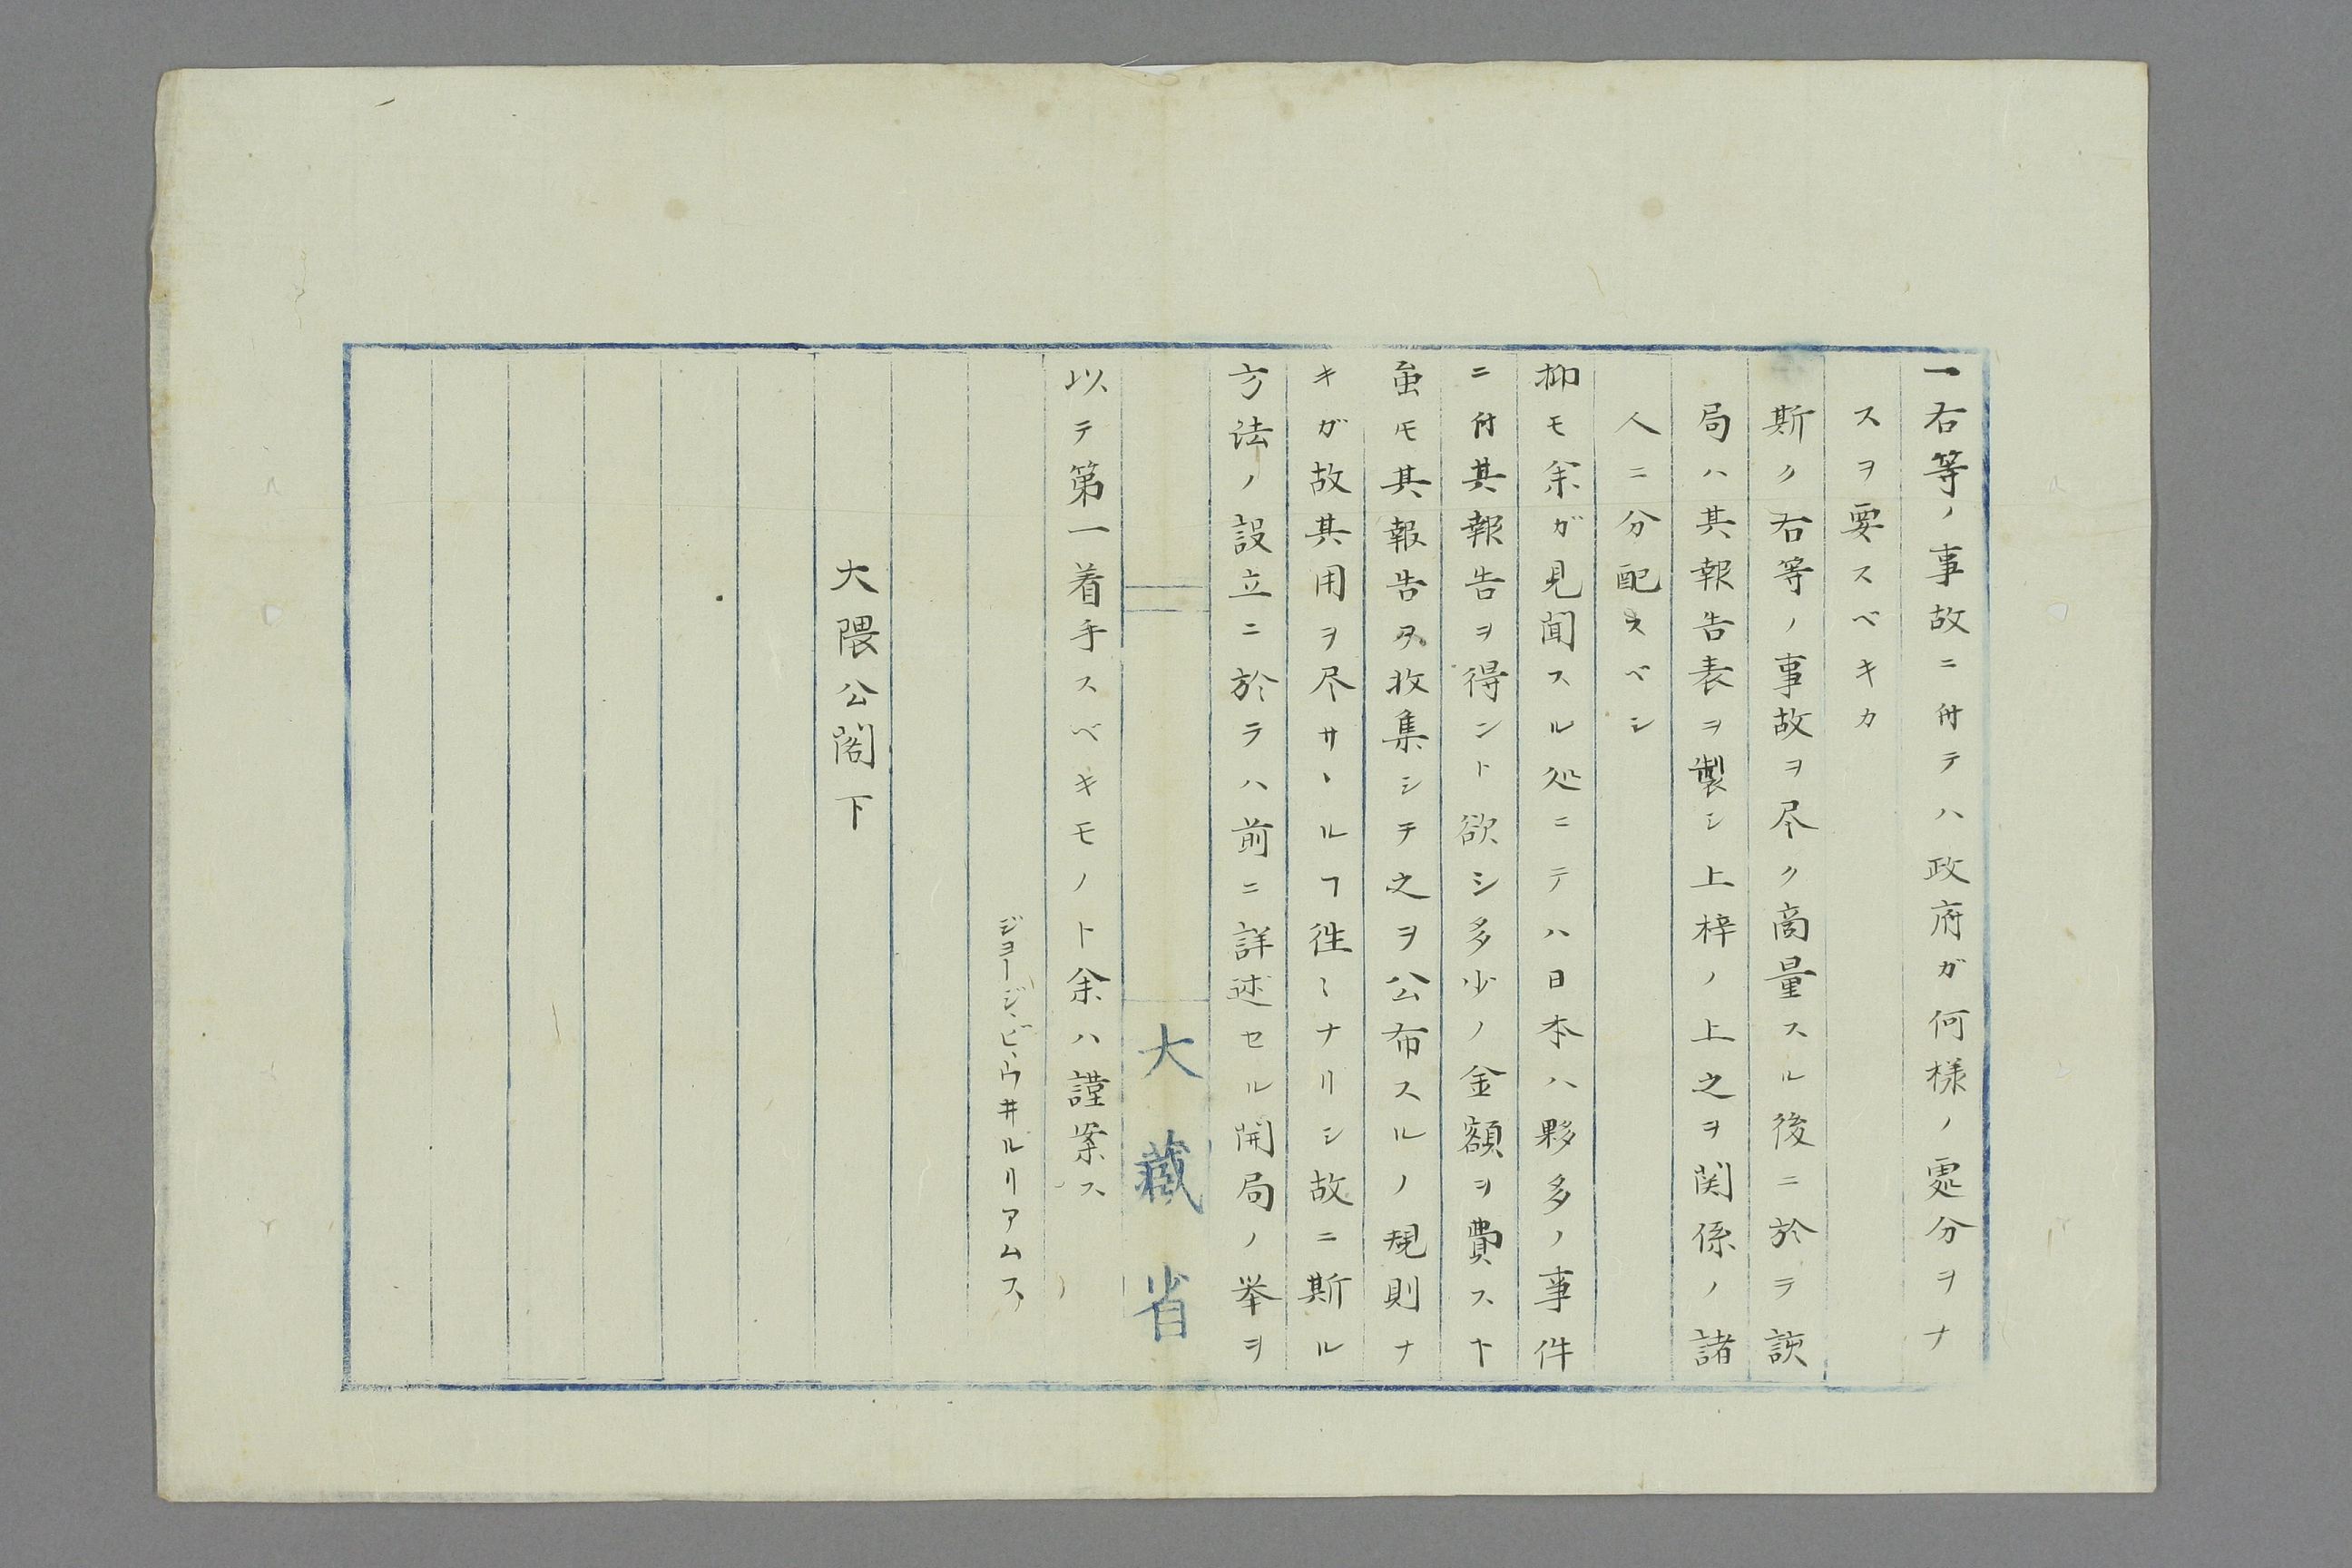 一右等ノ事故ニ付テハ政府ガ何様ノ處分ヲナ
スヲ要スベキカ
斯ク右等ノ事故ヲ尽ク商量スル後ニ於テ該
局ハ其報告表ヲ製シ上梓ノ上之ヲ関係ノ諸
人ニ分配スベシ
抑モ余ガ見聞スル処ニテハ日本ハ夥多ノ事件
ニ付其報告ヲ得ント欲シ多少ノ金額ヲ費スト
虽モ其報告ヲ收集シテ之ヲ公布スルノ規則ナ
キガ故其用ヲ尽サヽルヿ徃〻ナリシ故ニ斯ル
方法ノ設立ニ於テハ前ニ詳述セル開局ノ挙ヲ
大藏省
以テ第一着手スベキモノト余ハ謹案ス
ジョージ、ビ、ウ井ルリアムス
大隈公閣下